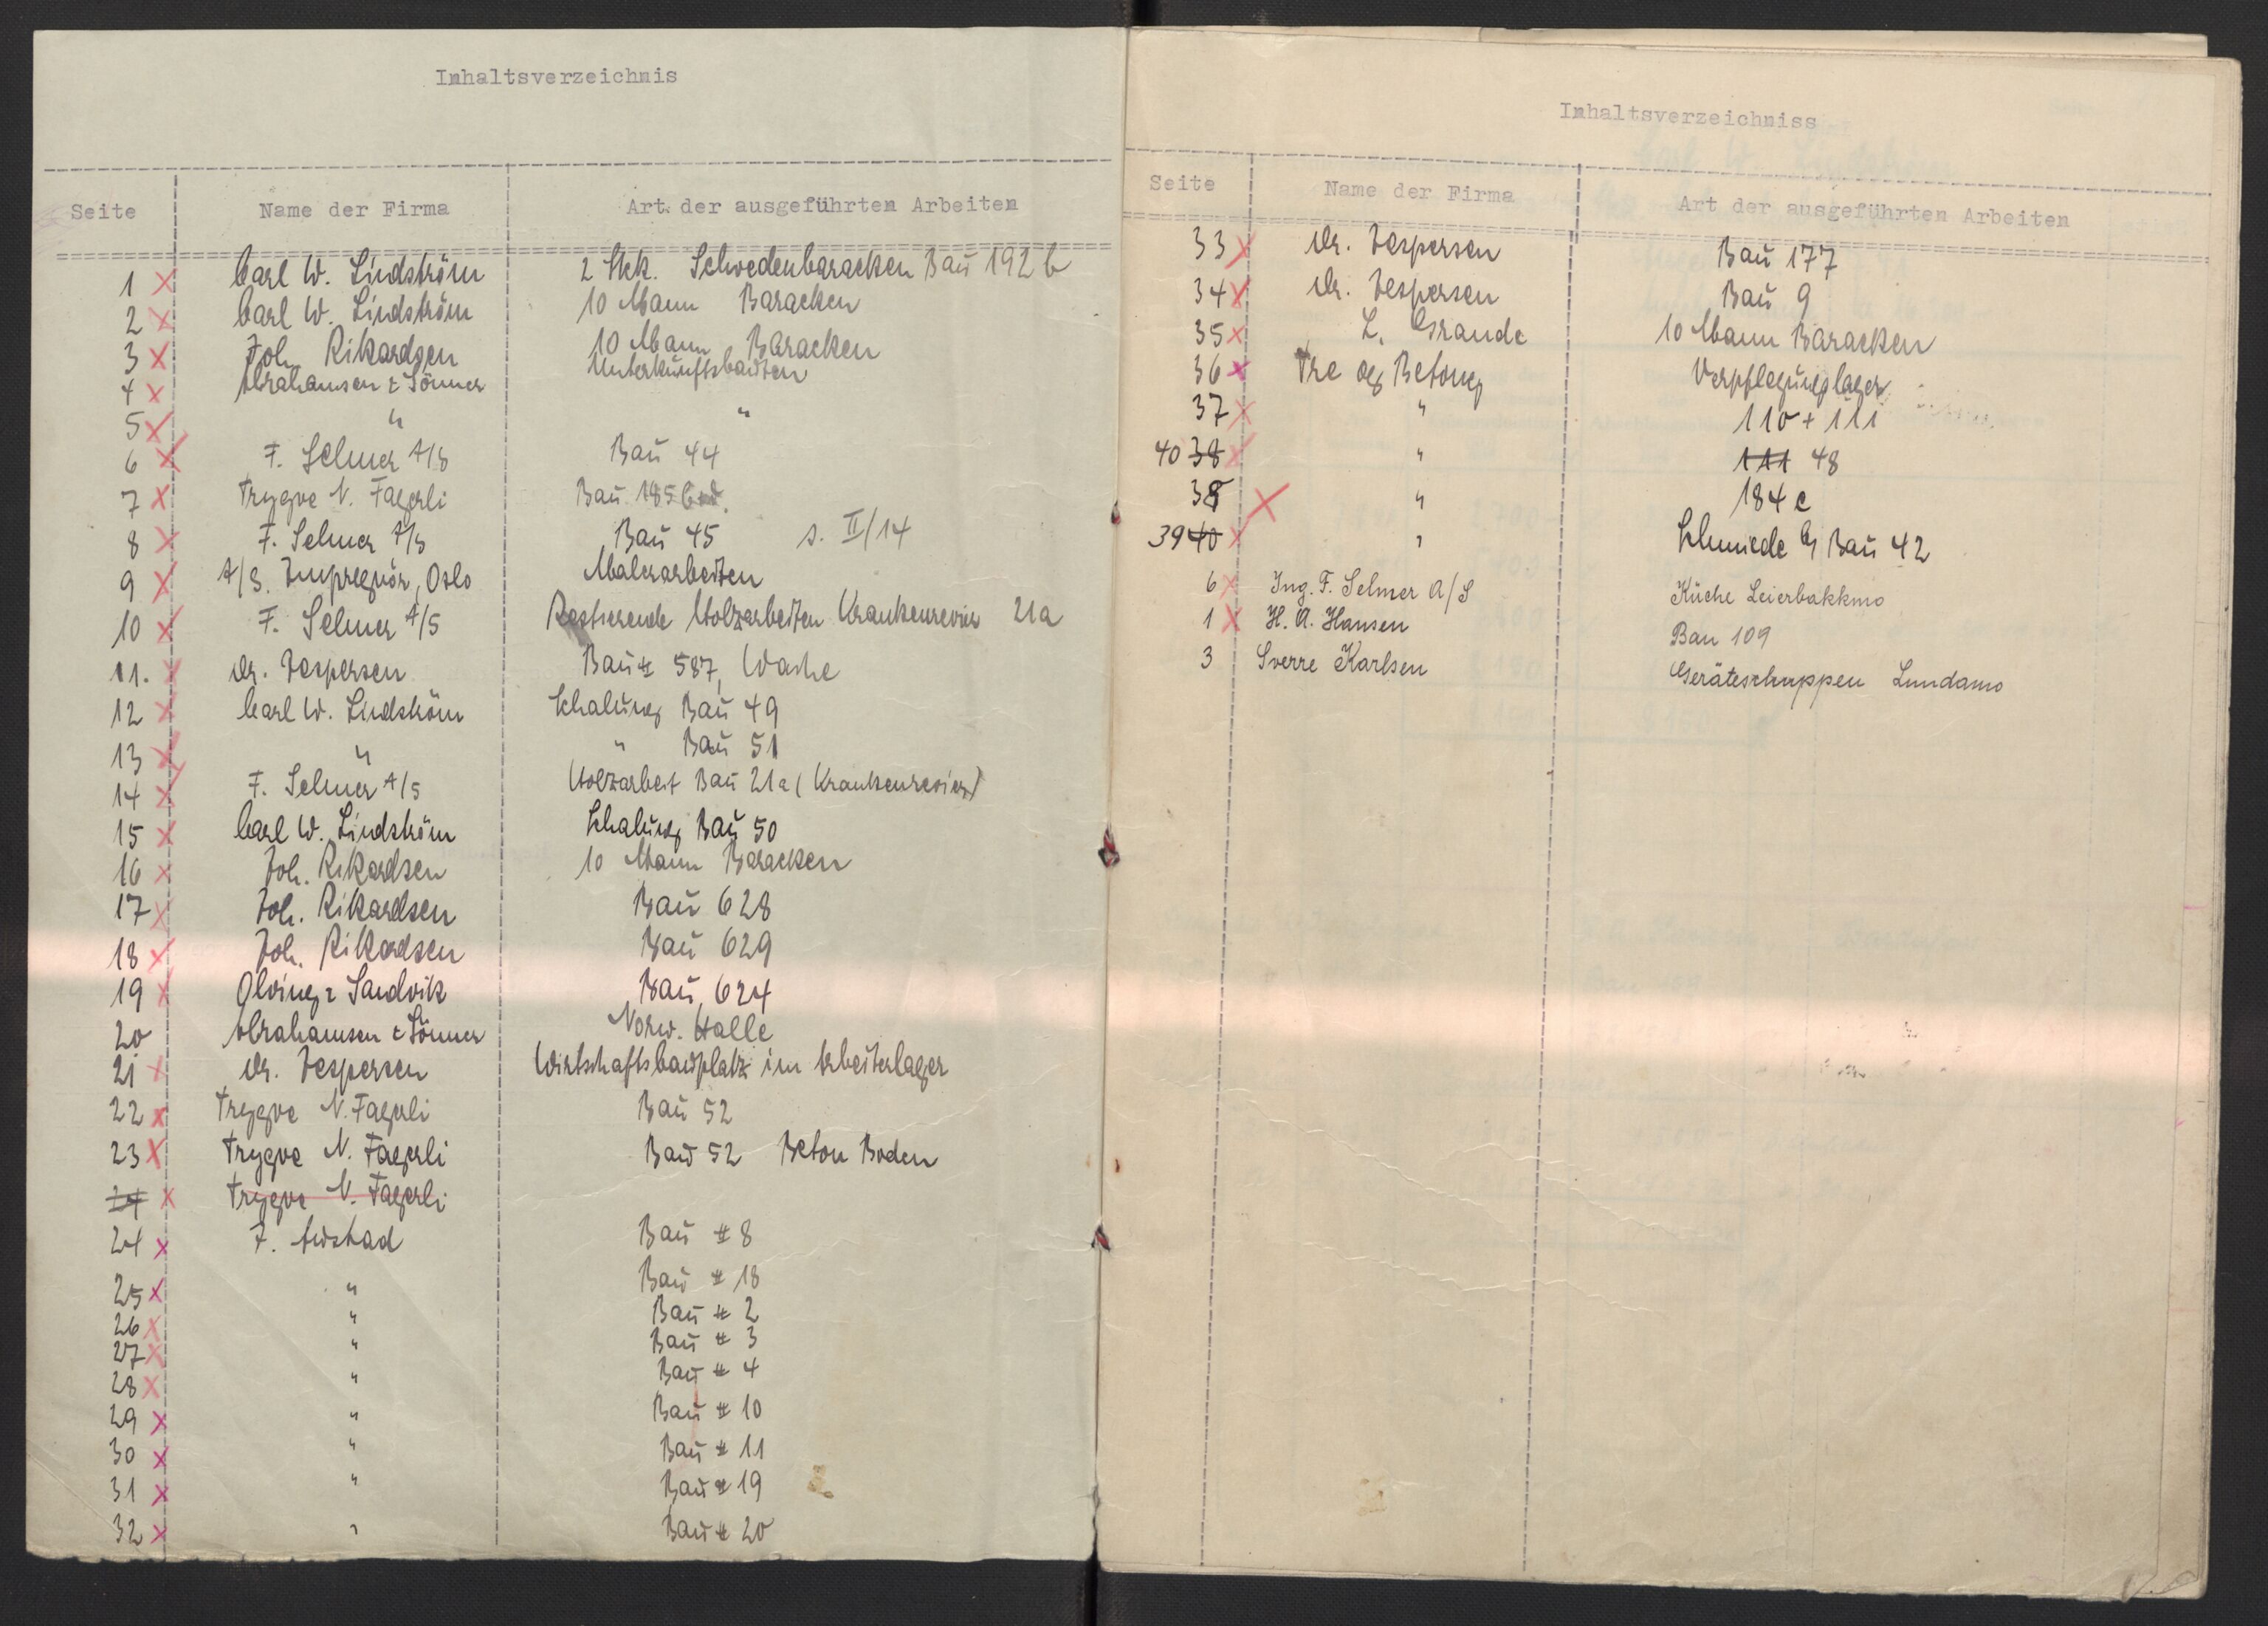 Inhaltsverzeichnis
Seite Name der Firma Art der ausgeführten Arbeiten
1 x Carl W. Lindström 2 Stck. Schwedenbaracken Bau 192 b
2 x Carl W. Lindström 10 Mann Baracken
3 x Joh. Rikardsen 10 Mann Baracken
4 x Abrahamsen & Sönner Unterkunftsbauten
5 x " "
6 x F. Selmer A/S Bau 44
7 x Trygve N. Fagerli Bau 185
8 x F. Selmer A/S Bau 45 s. II/14
9 x A/S. Impregnör, Oslo Malerarbeiten
10 x F. Selmer A/S Restierende Holzarbeiten Krankenrevier 21a
11. x Dr. Jespersen Bau # 587, Wache
12 x Carl W. Lindström Schalung Bau 49
13 x " " Bau 51
14 x F. Selmer A/S Holzarbeit Bau 21a (Krankenrevier)
15 x Carl W. Lindström Schalung Bau 50
16 x Joh. Rikardsen 10 Mann Baracken
17 x Joh. Rikardsen Bau 628
18 x Joh. Rikardsen Bau 629
19 x Olving & Sandvik Bau 624
20 Abrahamsen & Sönner Norw. Halle
21 x Dr. Jespersen Wirtschaftsbauplatz im Arbeiterlager
22 x Trygve N. Fagerli Bau 52
23 x Trygve N. Fagerli Bau 52 Beton Boden
24 x Trygve N. Fagerli
24 x F. Austad Bau # 8
25 x " Bau # 18
26 x " Bau # 2
27 x " Bau # 3
28 x " Bau # 4
29 x " Bau # 10
30 x " Bau # 11
31 x " Bau # 19
32 x " Bau # 20
Inhaltsverzeichniss
Seite Name der Firma Art der ausgeführten Arbeiten
33 x Dr. Jespersen Bau 177
34 x Dr. Jespersen Bau 9
35 x L. Grande 10 Mann Baracken
36 x Tre og Betong Verpflegungslager
37 x " 110 + 111
40 38 x " 111 48
38 x " 184 c
39 40 x " Schmiede Bau 42
6 x Ing. F. Selmer A/S Küche Leierbakkmo
1 x H. A. Hansen Bau 109
3 Sverre Karlsen Geräteschuppen Lundamo